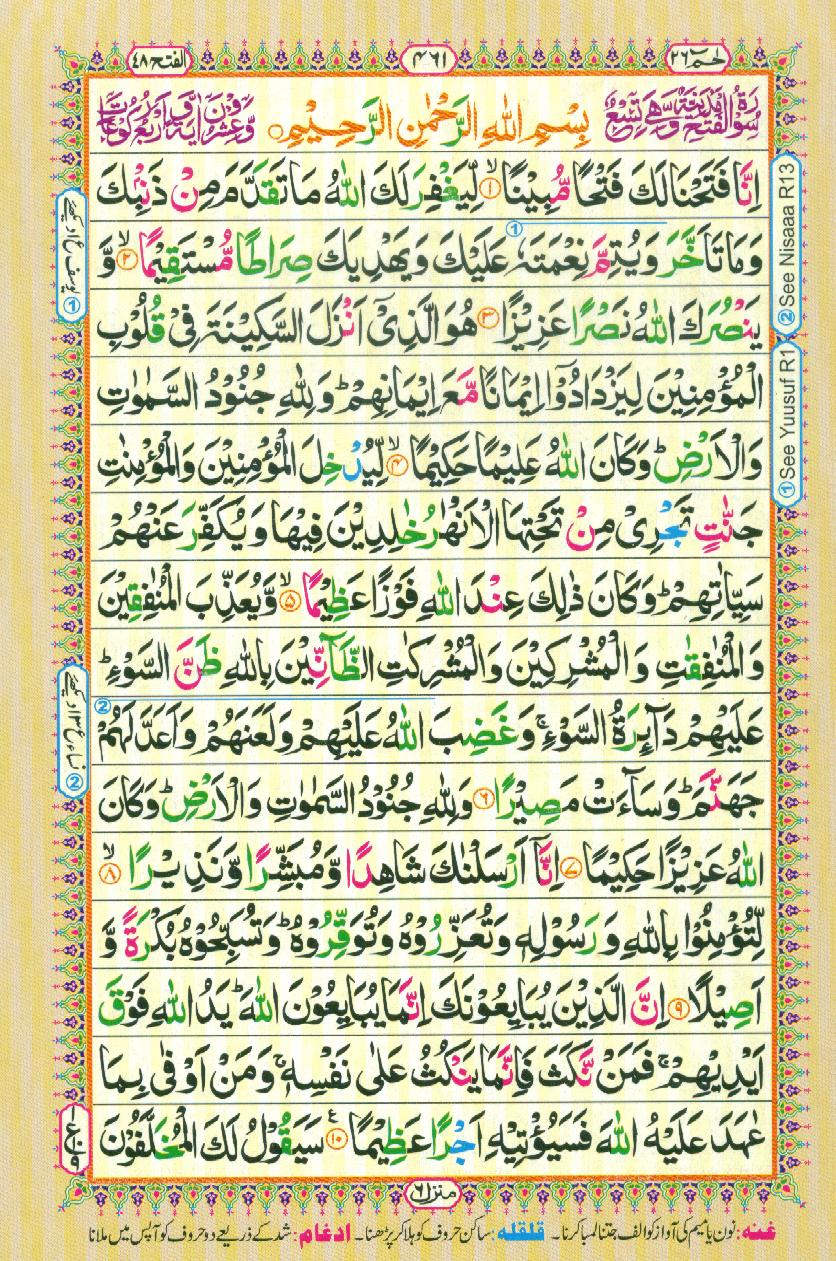 الفتح ٤٨
٤٦١
حٰمٓ ٢٦
سُوْرَةُ الْفَتْحِ مَدَنِيَّةٌ وَّهِيَ تِسْعٌ
بِسْمِ اللهِ الرَّحْمٰنِ الرَّحِيْمِ
وَّعِشْرُوْنَ اٰيَةً وَّاَرْبَعُ رُكُوْعَاتٍ
اِنَّا فَتَحْنَا لَكَ فَتْحًا مُّبِيْنًا ۙ‏ ١ لِّيَغْفِرَ لَكَ اللهُ مَا تَقَدَّمَ مِنْ ذَنْۢبِكَ
وَمَا تَاَخَّرَ وَيُتِمَّ نِعْمَتَهٗ عَلَيْكَ وَيَهْدِيَكَ صِرَاطًا مُّسْتَقِيْمًا ۙ‏ ٢ وَّ
يَنْصُرَكَ اللهُ نَصْرًا عَزِيْزًا ٣ هُوَ الَّذِيْۤ اَنْزَلَ السَّكِيْنَةَ فِيْ قُلُوْبِ
الْمُؤْمِنِيْنَ لِيَزْدَادُوْۤا اِيْمَانًا مَّعَ اِيْمَانِهِمْ ؕ وَلِلّٰهِ جُنُوْدُ السَّمٰوٰتِ
وَالْاَرْضِ ؕ وَكَانَ اللهُ عَلِيْمًا حَكِيْمًا ۙ‏ ٤ لِّيُدْخِلَ الْمُؤْمِنِيْنَ وَالْمُؤْمِنٰتِ
جَنّٰتٍ تَجْرِيْ مِنْ تَحْتِهَا الْاَنْهٰرُ خٰلِدِيْنَ فِيْهَا وَيُكَفِّرَ عَنْهُمْ
سَيِّاٰتِهِمْ ؕ وَكَانَ ذٰلِكَ عِنْدَ اللهِ فَوْزًا عَظِيْمًا ۙ‏ ٥ وَّيُعَذِّبَ الْمُنٰفِقِيْنَ
وَالْمُنٰفِقٰتِ وَالْمُشْرِكِيْنَ وَالْمُشْرِكٰتِ الظَّآنِّيْنَ بِاللهِ ظَنَّ السَّوْءِ ؕ
عَلَيْهِمْ دَآئِرَةُ السَّوْءِ ۚ وَغَضِبَ اللهُ عَلَيْهِمْ وَلَعَنَهُمْ وَاَعَدَّ لَهُمْ
جَهَنَّمَ ؕ وَسَآءَتْ مَصِيْرًا ٦ وَلِلّٰهِ جُنُوْدُ السَّمٰوٰتِ وَالْاَرْضِ ؕ وَكَانَ
اللهُ عَزِيْزًا حَكِيْمًا ٧ اِنَّاۤ اَرْسَلْنٰكَ شَاهِدًا وَّمُبَشِّرًا وَّنَذِيْرًا ۙ‏ ٨
لِّتُؤْمِنُوْا بِاللهِ وَرَسُوْلِهٖ وَتُعَزِّرُوْهُ وَتُوَقِّرُوْهُ ؕ وَتُسَبِّحُوْهُ بُكْرَةً وَّ
اَصِيْلًا ٩ اِنَّ الَّذِيْنَ يُبَايِعُوْنَكَ اِنَّمَا يُبَايِعُوْنَ اللهَ ؕ يَدُ اللهِ فَوْقَ
اَيْدِيْهِمْ ۚ فَمَنْ نَّكَثَ فَاِنَّمَا يَنْكُثُ عَلٰى نَفْسِهٖ ۚ وَمَنْ اَوْفٰى بِمَا
عٰهَدَ عَلَيْهُ اللهَ فَسَيُؤْتِيْهِ اَجْرًا عَظِيْمًا ١٠ سَيَقُوْلُ لَكَ الْمُخَلَّفُوْنَ
② See Nisaaa R13
① See Yuusuf R1
منزل ٦
غنه: نون یا میم کی آواز کو الف جتنا لمبا کرنا۔ قلقله: ساکن حروف کو ہلا کر پڑھنا۔ ادغام: شد کے ذریعے دو حروف کو آپس میں ملانا